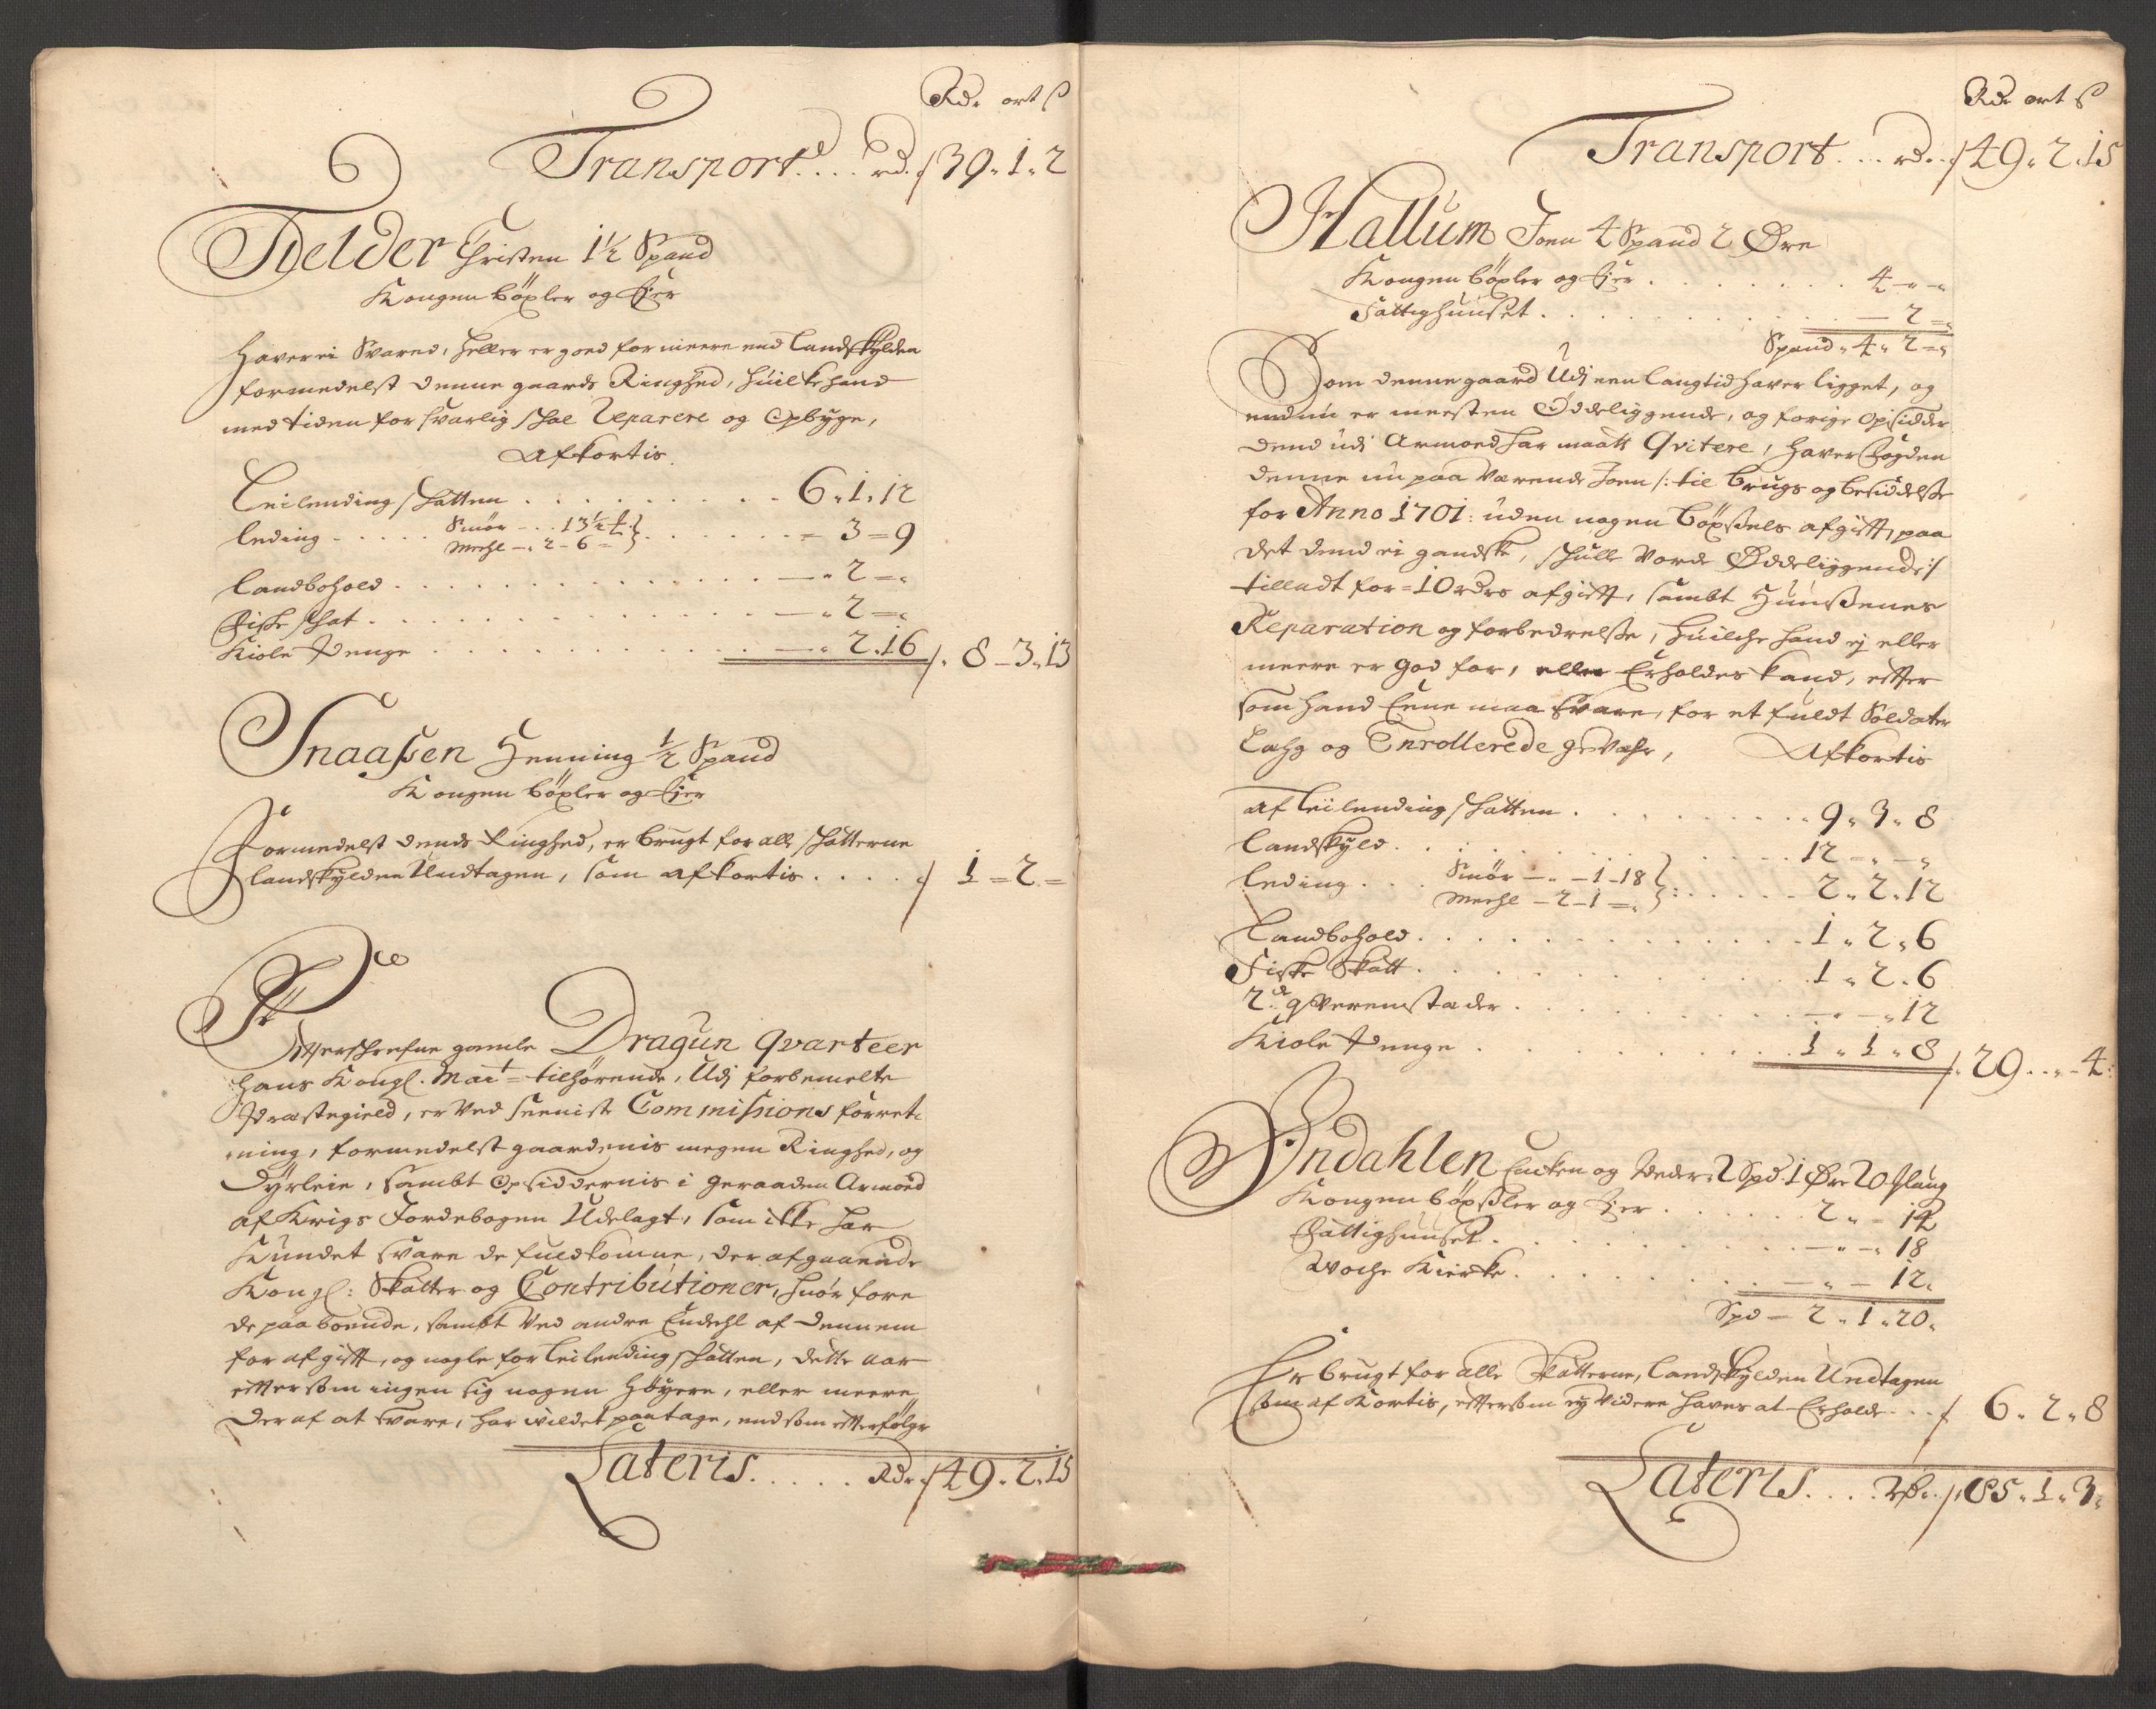 Rdr ort s
Transport .... rd. 139. 1. 2
Felder Christen 1½ Spand
Kongen böxler og Ejer
Haver ei Svared, heller er goed for meere end Landskylden
formedelst denne gaards Ringhed, huilke hand
med tiden forsvarlig shal Reparere og Opbyge,
Afkortis
Leilending shatten . . . 6. 1. 12
Leding . . . Smör - .. 13½ . . . 3 = 9
Meehl - . 2 - 6 =
Landbohold . . . 2 =
Fiske shat . . . 2 =
Kiole Penge . . . 2. 16 /. 8 - 3. 13
Snaasen Henning ½ Spand
Kongen böxler og Ejer
Formedelst dends Ringhed, er brugt for alle shatterne
landskylden Undtagen, som afkortis . . . . 1 = 2 =
Efterschrefne gamle Dragun qvarteer
Hans Kongl. Mait = tilhörende, Udj forbemelte
Præstegield, er Ved seeniste Commissions forret-
ning, formedelst gaardenis megen Ringhed, og
Dyrleie, sambt Opsiddernis i geraaden Armoed
af Krigs Jordebogen Udelagt, som ikke har
Kundet svare de fuldkomne, der afgaaende
Kongl: Skatter og Contributioner, huor fore
de paaboende, sambt Ved andre Endeehl af dennem
for afgifft, og nogle for Leilending shatten, dette aar
effter som ingen sig nogen höyere, eller meere,
der af at svare, har villdet paatage, end som effterfölger
Lateris . . . . . Rdr 149. 2. 15
Rdr ort s
Transport . . . rd. 149. 2. 15
Hallum Joen 4 Spand 2 Öre
Kongen böxler og Ejer . . . 4 - " -
Fattighuuset . . . 2 =
Spand. 4. 2 =
Som denne gaard Udj een langtid haver ligget, og
endnu er meesten Öddeliggende, og forige Opsidder
dend udi Armoed har maatt Qvitere, haver fogden
denne nu paa Værende Joen /: til brugs og besiddelse
for Anno 1701: uden nogen böxsels afgifft, paa
det dend ei gandske, shulle Vorde Öddeliggende :/
tilladt for = 10 rdrs afgifft, sambt Huusenes
Reparation og forbedrelse, huilche hand ej eller
meere er god for, eller Erholdes kand, effter
som hand Eene maa svare, for et fuldt Soldater
Lahg og Enrollerede gevæhr, Afkortis
af Leilending shatten . . . 9. 3. 8
Landskyld . . . 12 - " - "
Leding . . . Smör - " - 1 - 18 . . . 2. 2. 12
Meehl - 2 - 1 =
Landbohold . . . 1. 2. 6
Fiske Skatt . . . 1. 2. 6
2de qvernstader . . . 12
Kiole Penge . . . 1. 1. 8 /. 29 . . " - 4.
Indahlen Encken og Peder 2 Spd. 1 Öre 20 shlaug
Kongen böxler og Ejer . . . 2. - 14
Fattighuuset . . . 18
Woche Kierke . . . 12.
Spd - 2. 1. 20.
Er brugt for alle Skatterne, Landskylden Undtagen
som af Kortis, effter som ej Videre haves at Erholde . . . 6. 2. 8
Lateris . . . . rdr. 185. 1. 3.